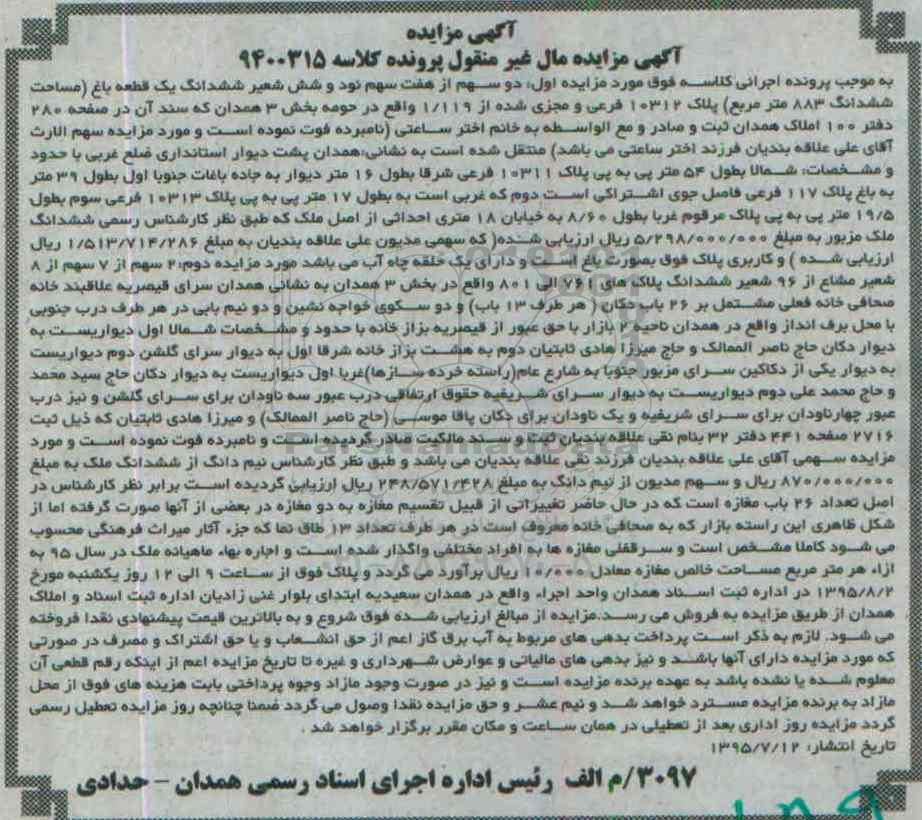 آگهی مزایده
آگهی مزایده مال غیر منقول پرونده کلاسه ۹۴۰۰۳۱۵
به موجب پرونده اجرائی کلاسه فوق مورد مزایده اول: دو سهم از هفت سهم نود و شش شعیر ششدانگ یک قطعه باغ (مساحت
ششدانگ ۸۸۳ متر مربع) پلاک ۱۰۳۱۲ فرعی و مجزی شده از ۱/۱۱۹ واقع در حومه بخش ۳ همدان که سند آن در صفحه ۲۸۰
دفتر ۱۰۰ املاک همدان ثبت و صادر و مع الواسطه به خانم اختر ساعتی (نامبرده فوت نموده است و مورد مزایده سهم الارث
آقای علی علاقه بندیان فرزند اختر ساعتی می باشد) منتقل شده است به نشانی:همدان پشت دیوار استانداری ضلع غربی با حدود
و مشخصات: شمالا بطول ۵۴ متر پی به پی پلاک ۱۰۳۱۱ فرعی شرقا بطول ۱۶ متر دیوار به جاده باغات جنوبا اول بطول ۳۹ متر
به باغ پلاک ۱۱۷ فرعی فاصل جوی اشتراکی است دوم که غربی است به بطول ۱۷ متر پی به پی پلاک ۱۰۳۱۳ فرعی سوم بطول
۱۹/۵ متر پی به پی پلاک مرقوم غربا بطول ۸/۶۰ به خیابان ۱۸ متری احداثی از اصل ملک که طبق نظر کارشناس رسمی ششدانگ
ملک مزبور به مبلغ ۵/۲۹۸/۰۰۰/۰۰۰ ریال ارزیابی شده( که سهمی مدیون علی علاقه بندیان به مبلغ ۱/۵۱۳/۷۱۴/۲۸۶ ریال
ارزیابی شده ) و کاربری پلاک فوق بصورت باغ است و دارای یک حلقه چاه آب می باشد مورد مزایده دوم: ۲ سهم از ۷ سهم از ۸
شعیر مشاع از ۹۶ شعیر ششدانگ پلاک های ۷۶۱ الی ۸۰۱ واقع در بخش ۳ همدان به نشانی همدان سرای قیصریه علاقبند خانه
صحافی خانه فعلی مشتمل بر ۲۶ باب دکان ( هر طرف ۱۳ باب) و دو سکوی خواجه نشین و دو نیم بابی در هر طرف درب جنوبی
با محل برف انداز واقع در همدان ناحیه ۲ بازار با حق عبور از قیصریه بزاز خانه با حدود و مشخصات شمالا اول دیواریست به
دیوار دکان حاج ناصر الممالک و حاج میرزا هادی ثابتیان دوم به هشت بزاز خانه شرقا اول به دیوار سرای گلشن دوم دیواریست
به دیوار یکی از دکاکین سرای مزبور جنوبا به شارع عام(راسته خرده سازها)غربا اول دیواریست به دیوار دکان حاج سید محمد
و حاج محمد علی دوم دیواریست به دیوار سرای شریفیه حقوق ارتفاقی درب عبور سه ناودان برای سرای گلشن و نیز درب
عبور چهارناودان برای سرای شریفیه و یک ناودان برای دکان پاقا موسی (حاج ناصر الممالک) و میرزا هادی ثابتیان که ذیل ثبت
۲۷۱۶ صفحه ۴۴۱ دفتر ۳۲ بنام نقی علاقه بندیان ثبت و سند مالکیت صادر گردیده است و نامبرده فوت نموده است و مورد
مزایده سهمی آقای علی علاقه بندیان فرزند نقی علاقه بندیان می باشد و طبق نظر کارشناس نیم دانگ از ششدانگ ملک به مبلغ
۸۷۰/۰۰۰/۰۰۰ ریال و سهم مدیون از نیم دانگ به مبلغ ۲۴۸/۵۷۱/۴۲۸ ریال ارزیابی گردیده است برابر نظر کارشناس در
اصل تعداد ۲۶ باب مغازه است که در حال حاضر تغییراتی از قبیل تقسیم مغازه به دو مغازه در بعضی از آنها صورت گرفته اما از
شکل ظاهری این راسته بازار که به صحافی خانه معروف است در هر طرف تعداد ۱۳ طاق نما که جزء آثار میراث فرهنگی محسوب
می شود کاملا مشخص است و سرقفلی مغازه ها به افراد مختلفی واگذار شده است و اجاره بهاء ماهیانه ملک در سال ۹۵ به
ازاء هر متر مربع مساحت خالص مغازه معادل ۱۰/۰۰۰ ریال برآورد می گردد و پلاک فوق از ساعت ۹ الی ۱۲ روز یکشنبه مورخ
۱۳۹۵/۸/۲ در اداره ثبت اسناد همدان واحد اجراء واقع در همدان سعیدیه ابتدای بلوار غنی زادیان اداره ثبت اسناد و املاک
همدان از طریق مزایده به فروش می رسد.مزایده از مبالغ ارزیابی شده فوق شروع و به بالاترین قیمت پیشنهادی نقدا فروخته
می شود. لازم به ذکر است پرداخت بدهی های مربوط به آب برق گاز اعم از حق انشعاب و یا حق اشتراک و مصرف در صورتی
که مورد مزایده دارای آنها باشد و نیز بدهی های مالیاتی و عوارض شهرداری و غیره تا تاریخ مزایده اعم از اینکه رقم قطعی آن
معلوم شده یا نشده باشد به عهده برنده مزایده است و نیز در صورت وجود مازاد وجوه پرداختی بابت هزینه های فوق از محل
مازاد به برنده مزایده مسترد خواهد شد و نیم عشر و حق مزایده نقدا وصول می گردد ضمنا چنانچه روز مزایده تعطیل رسمی
گردد مزایده روز اداری بعد از تعطیلی در همان ساعت و مکان مقرر برگزار خواهد شد .
تاریخ انتشار: ۱۳۹۵/۷/۱۲
۳۰۹۷/م الف رئیس اداره اجرای اسناد رسمی همدان - حدادی